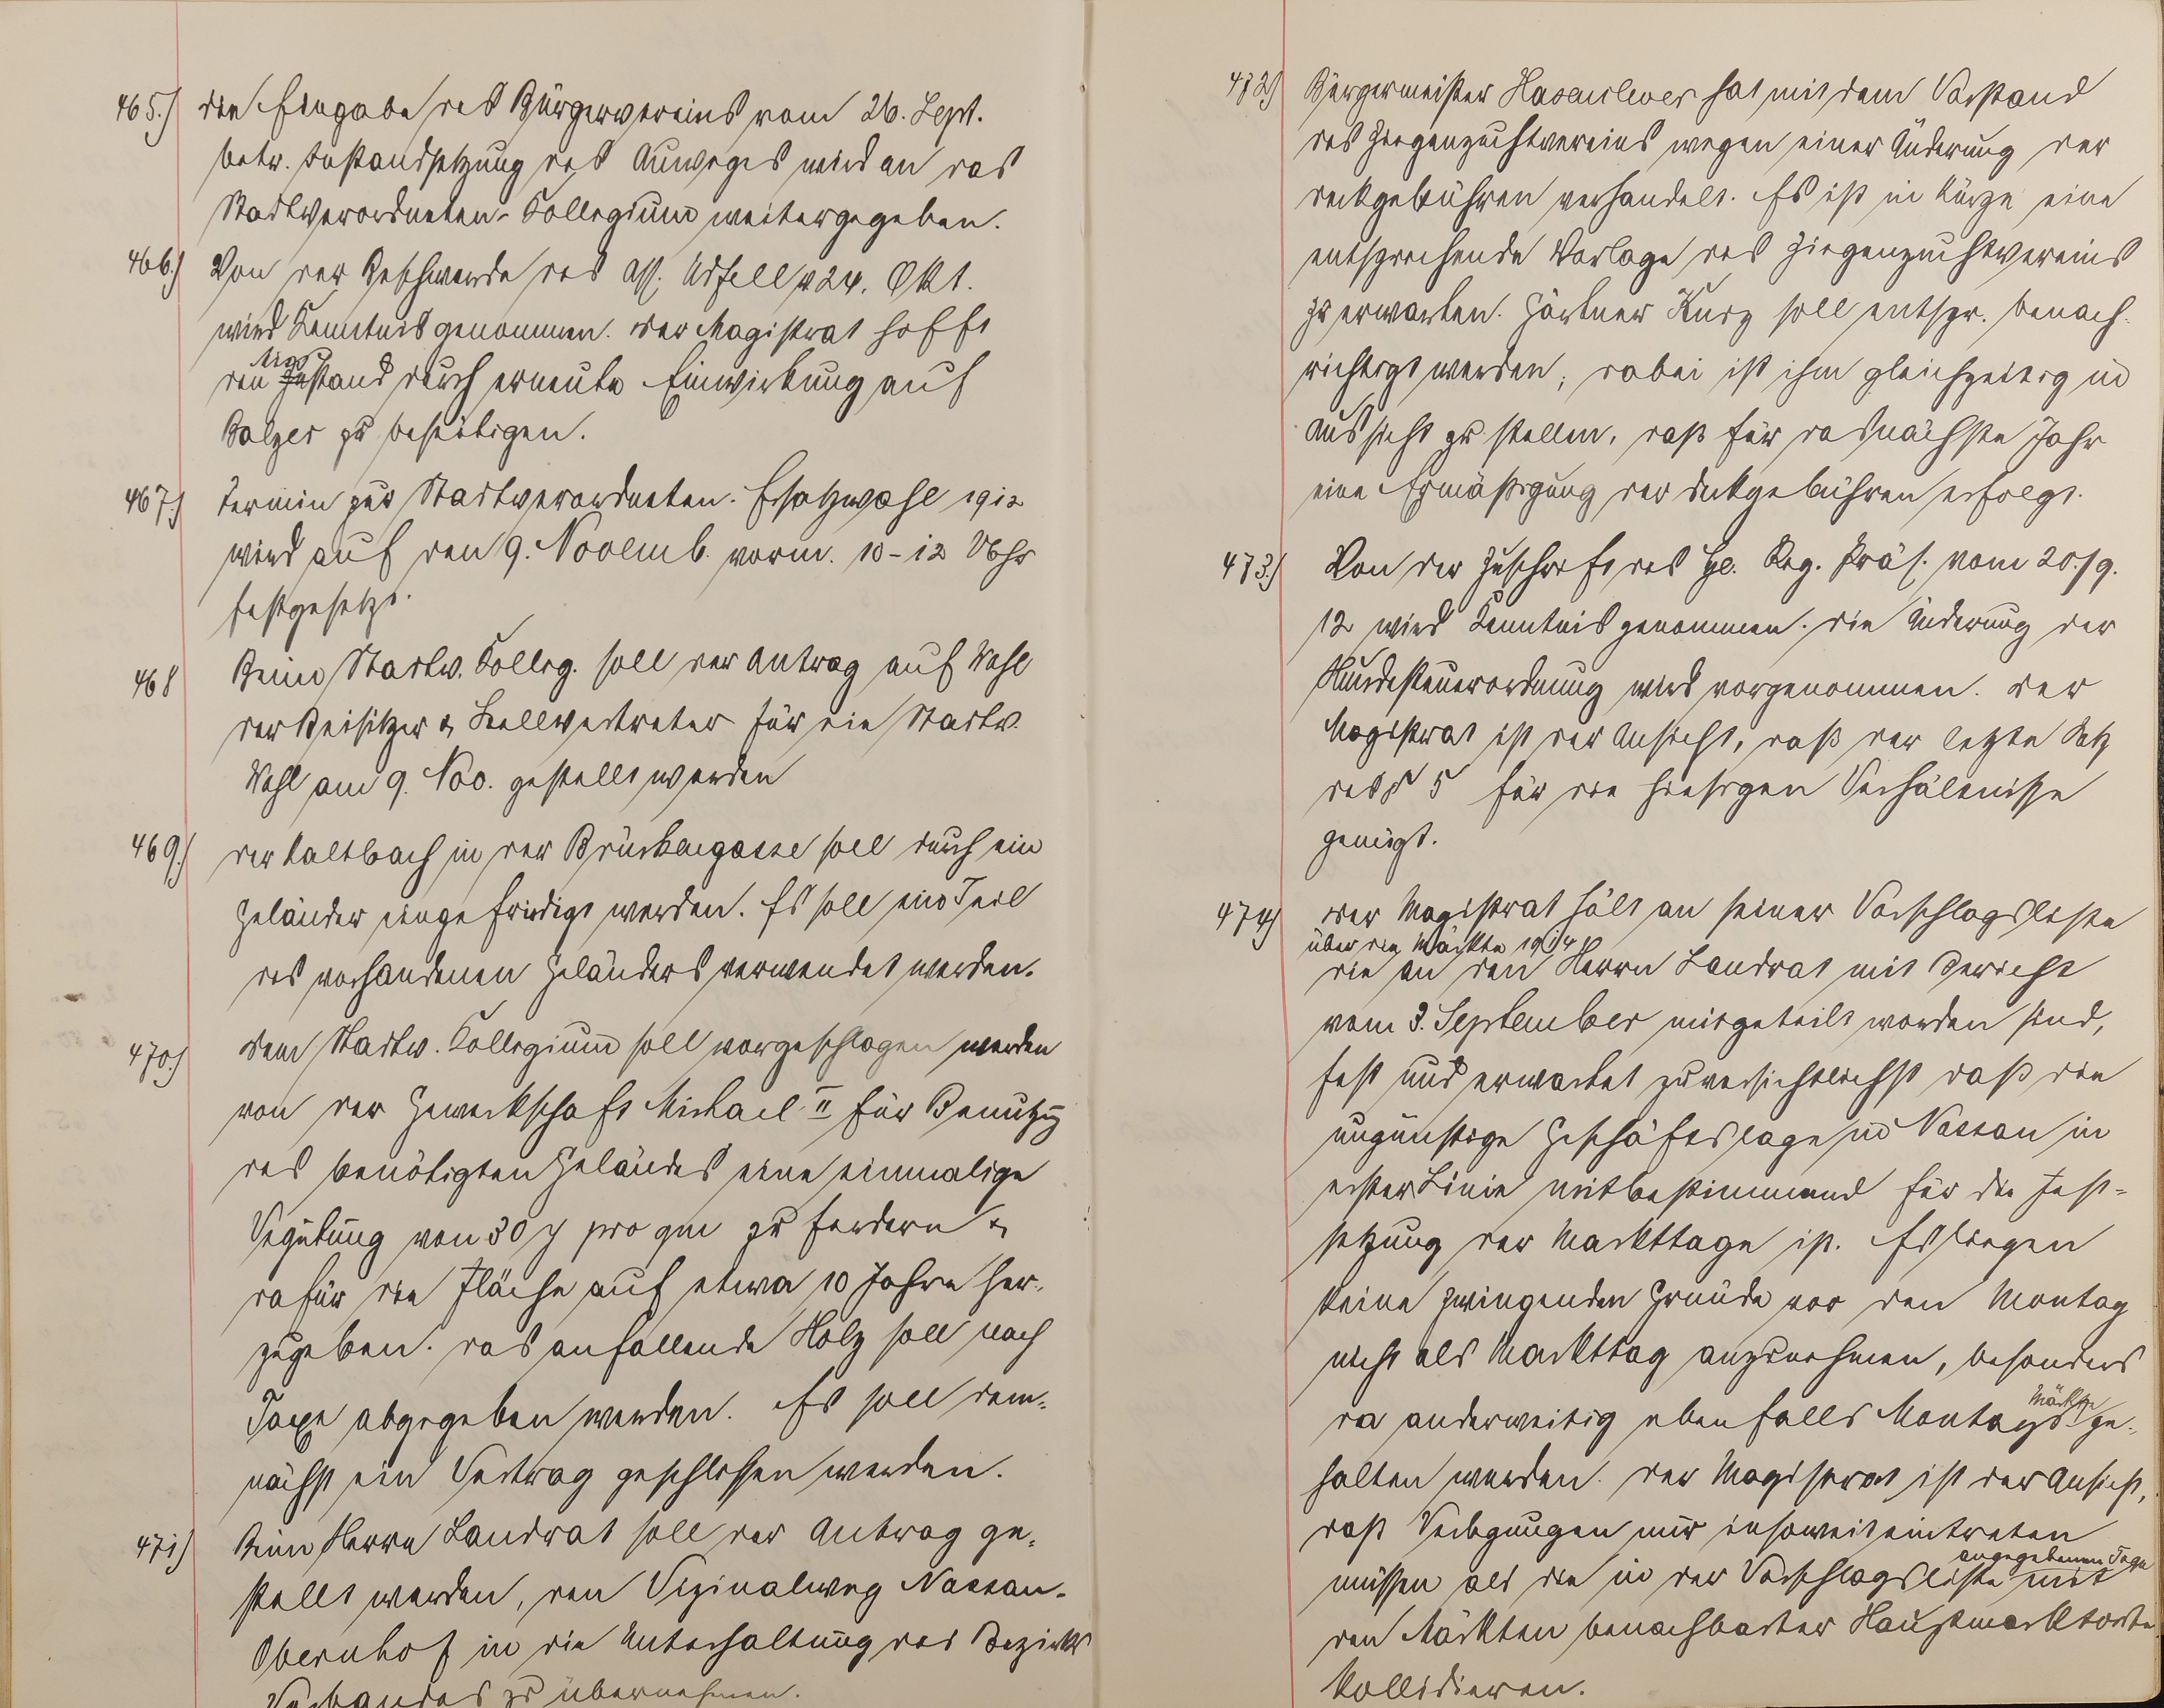 465.) Die Eingabe des Bürgervereins vom 26. Sept.
betr. Instandsetzung des Auweges wird an das
Stadtverordneten-Kollegium weitergegeben.
466.) Von der Beschwerde des Ass. Adsell v 24. Okt.
wird Kenntnis genommen. Der Magistrat hofft
den Miss
stand durch erneute Einwirkung auf
Balzer zu beseitigen.
467.) Termin zur Stadtverordneten-Ersatzwahl 1912
wird auf den 9. Novemb. vorm. 10-12 Uhr
festgesetzt.
468 Beim Stadtv. Kolleg. soll der Antrag auf Wahl
der Beisitzer & Stellvertreter für die Stadtv.
Wahl am 9. Nov. gestellt werden
469.) Der Kaltbach in der Brückengasse soll durch ein
Geländer eingefriedigt werden. Es soll ein Teil
des vorhandenen Geländers verwendet werden.
470.) Dem Stadtv. Kollegium soll vorgeschlagen werden
von der Gewerkschaft Michael II für Benutzg
des benötigten Geländes eine einmalige
Vergütung von 30 ₰ pro qm zu fordern &
dafür die Fläche auf etwa 10 Jahre her-
zugeben. Das anfallende Holz soll nach
Taxe abgegeben werden. Es soll dem-
nächst ein Vertrag geschlossen werden.
471) Beim Herrn Landrat soll der Antrag ge-
stellt werden, den Vizinalweg Nassau-
Obernhof in die Unterhaltung des Bezirks
Verbandes zu übernehmen.
472) Bürgermeister Hasenclever hat mit dem Vorstand
des Ziegenzuchtvereins wegen einer Änderung der
Deckgebühren verhandelt. Es ist in Kürze eine
entsprechende Vorlage des Ziegenzuchtvereins
zu erwarten. Gärtner Kurz soll entspr. benach-
richtigt werden; dabei ist ihm gleichzeitig in
Aussicht zu stellen, daß für das nächste Jahr
eine Ermäßigung der Deckgebühren erfolgt.
473.) Von der Zuschrift des H. Reg. Präs. vom 20./9.
12 wird Kenntnis genommen. Die Änderung der
Hundesteuerordnung wird vorgenommen. Der
Magistrat ist der Ansicht, daß der letzte Satz
des § 5 für die hiesigen Verhältnisse
genügt.
474) Der Magistrat hält an seiner Vorschlagsliste
über die Märkte 1914
die an den Herrn Landrat mit Bericht
vom 3. September mitgeteilt worden sind,
fest und erwartet zuversichtlichst daß die
ungünstige Geschäftslage in Nassau in
erster Linie mitbestimmend für die Fest-
setzung der Markttage ist. Es liegen
keine zwingenden Gründe vor den Montag
nicht als Markttag anzunehmen, besonders
da anderweitig ebenfalls Montags Märkte ge-
halten werden. Der Magistrat ist der Ansicht,
daß Verlegungen nur insoweit eintreten
müssen als die in der Vorschlagsliste angegebenen Tage mit
den Märkten benachbarter Hauptmarktorte
kollidieren.